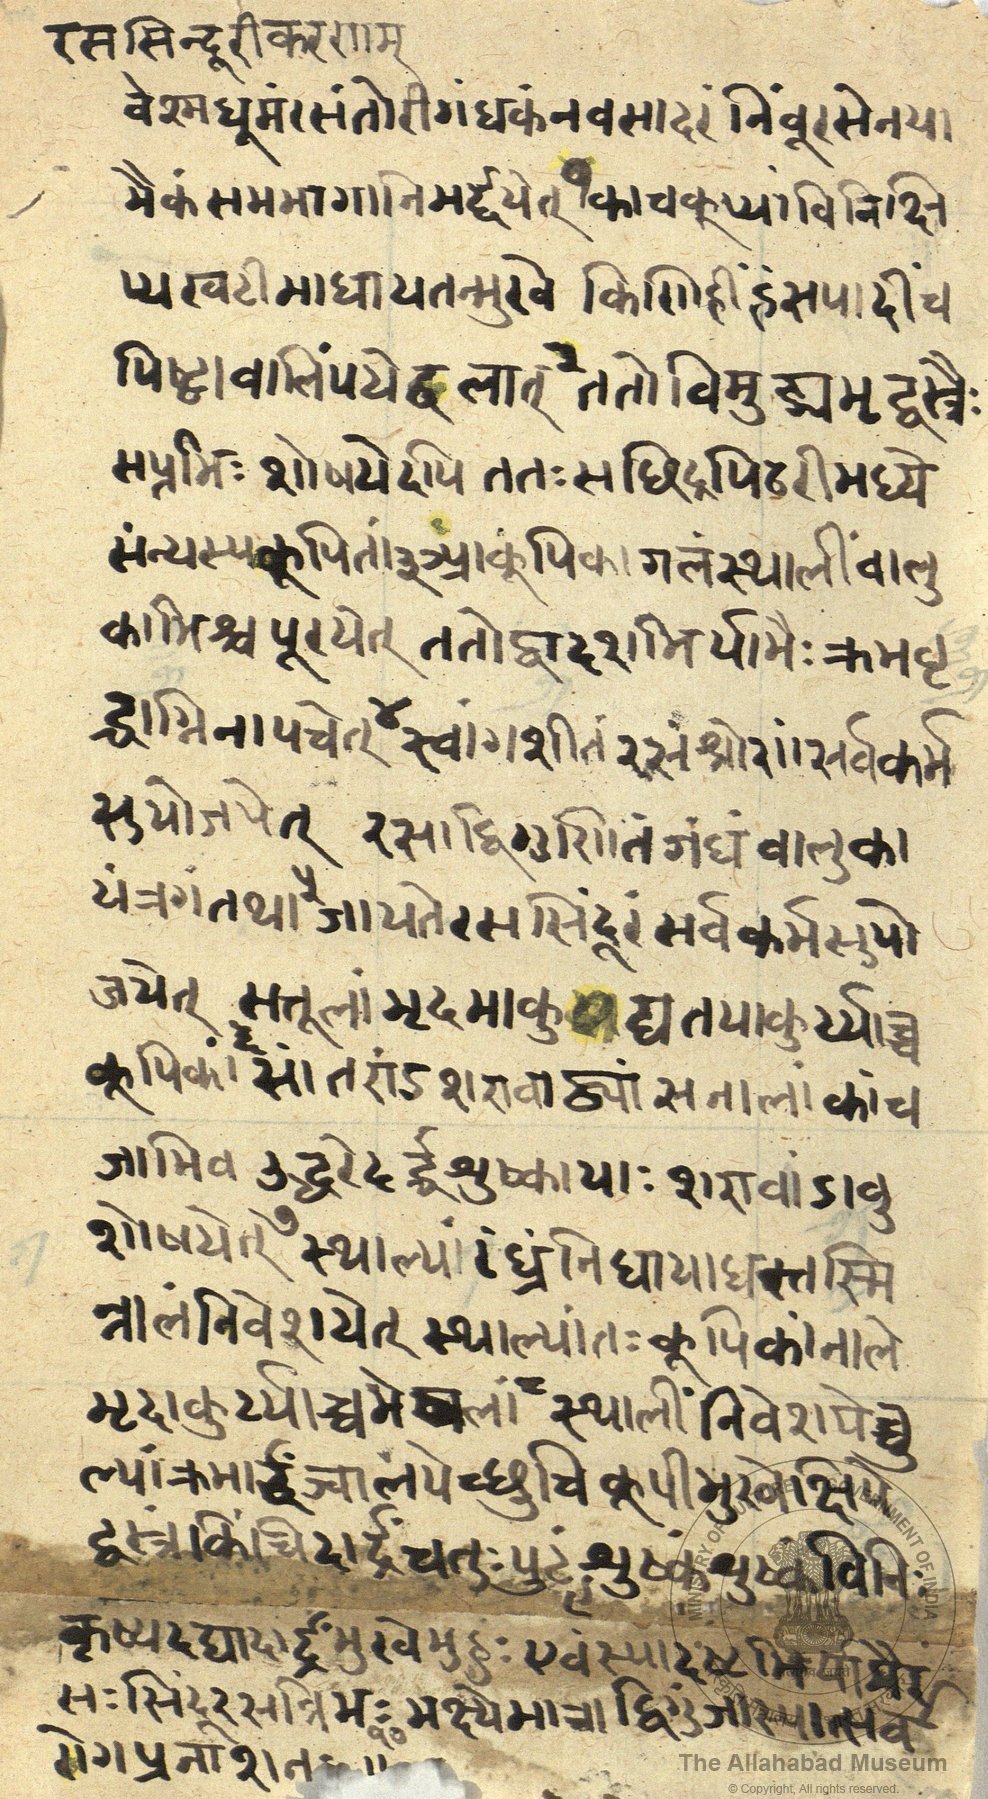 रससिन्दूरीकरणम्
वेश्मधूमंरसंतोरीगंधकंनवसादरं निंवूरसेनया
मैकंसमभागानिमर्द्दयेत् १ काचकूप्यांविनिक्षि
प्यखटीमाधायतन्मुखे किणिहींहंसपादींच
पिष्ट्वावालिंपयेद्दलात् २ ततोविमुद्यमृद्वस्त्रैः
सप्तभिः शोषयेदपि ततःसछिद्रपिठरीमध्ये
संन्यस्यकूपितां ३ कूपिकागलंस्थालींवालु
काभिश्चपूरयेत् ततोद्वादशभिर्यामैः क्रमवृ
द्धाग्निनापचेत् ४ स्वांगशीतं सर्वकर्म
सुयोजयेत् रसाद्विगुणितंगंधंवालुका
यंत्रगंतथा ५ जायतेरससिंदूरंसर्वकर्मसुयो
जयेत् सतूलांमृदमाकु तयाकुर्य्याच्च
कूपिकां ६ सांतरांऽशरावाढ्यांसनालांकांच
जामिव उद्धरेदर्द्धशुष्कायाः शरावांऽावु
शोषयेत् ७ स्थाल्यांरंध्रंनिधायाधस्तस्मि
न्नालंनिवेशयेत् स्थाल्यांतःकूपिकांनाले
मृदाकुर्य्याच्चमेखलां ८ स्थालींनिवेशयेच्चु
ल्यांक्रमार्द्ध ज्वालयेच्छुचि कूपीमुखेक्षिपे
द्वस्त्रंकिंचिदार्द्रंचतुःपुटं ९ शुष्कंशुष्कंविनिः
कृष्यदद्यादार्द्रंमुखेमुहुः एवंस्याद
सःसिंदूरसन्निभः १० भक्ष्येमात्राद्विगुंजास्यात्सर्व
रोगप्रनाशन
MINISTRY OF CULTURE GOVERNMENT OF INDIA
The Allahabad Museum
© Copyright, All rights reserved.